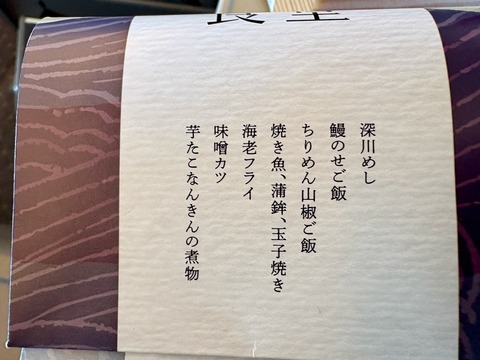 深川めし
鰻のせご飯
ちりめん山椒ご飯
焼き魚、蒲鉾、玉子焼き
海老フライ
味噌カツ
芋たこなんきんの煮物